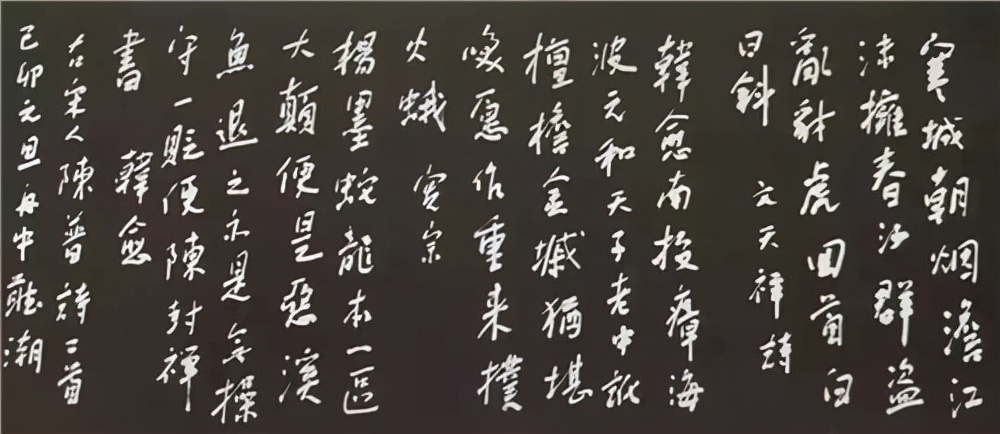 寒城朝烟澹江
沫擁春沙群盗
亂豺虎回首白
日斜 文天祥詩
韓愈南投瘴海
波元和天子老中訛
檀檐金猶堪
喚愿作重来撲
火蛾 宪宗
楊墨蛇龍本一區
大顛便是惡溪
魚退之亦是無操
守一貶便陳封禅
書 韓愈
右宋人陳普詩二首
己卯元旦舟中聽潮